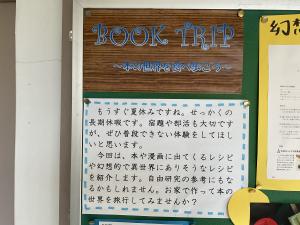 BOOK TRIP
もうすぐ夏休みですね。せっかくの
長期休暇です。宿題や部活も大切です
が、ぜひ普段できない体験をしてほし
いと思います。
今回は、本や漫画に出てくるレシピ
や幻想的で異世界にありそうなレシピ
を紹介します。自由研究の参考にもな
るかもしれません。お家で作って本の
世界を旅行してみませんか？
幻想